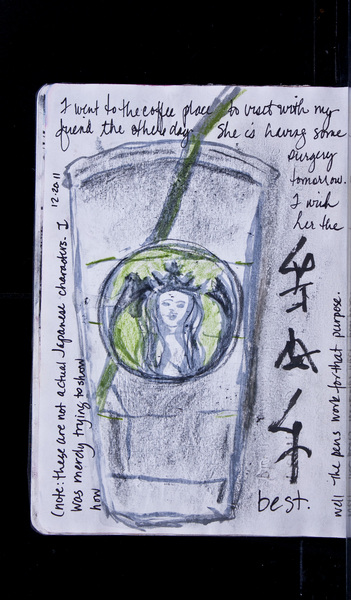 I went to the coffee place to visit with my
friend the other day. She is having some
surgery
tomorrow.
I wish
her the
best.
12.20.11
(note: these are not actual Japanese characters. I
was merely trying to show
how
well the pens work for that purpose.